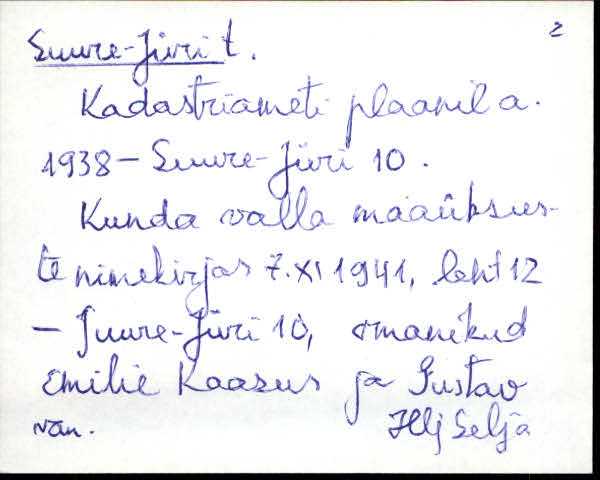 2
Suure-Jüri t.
Kadastriameti plaanil a.
1938 — Suure-Jüri 10.
Kunda valla maaüksus-
te nimekirjas 7. XI 1941, leht 12
— Suure-Jüri 10, omanikud
Emilie Kaasus ja Gustav
VAn. Hlj Selja